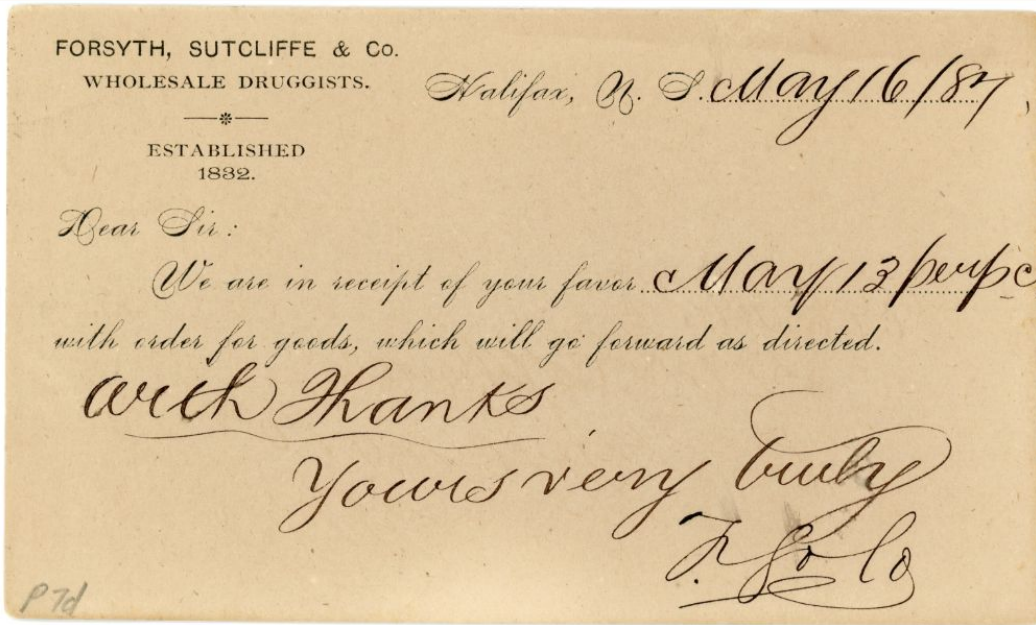 FORSYTH, SUTCLIFFE & Co.
WHOLESALE DRUGGISTS.
ESTABLISHED
1832.
Halifax, N. S. May 16/87
Dear Sir:
We are in receipt of your favor May 13 per p c
with order for goods, which will go forward as directed.
With Thanks
Yours very truly
F. S & Co
P 7d